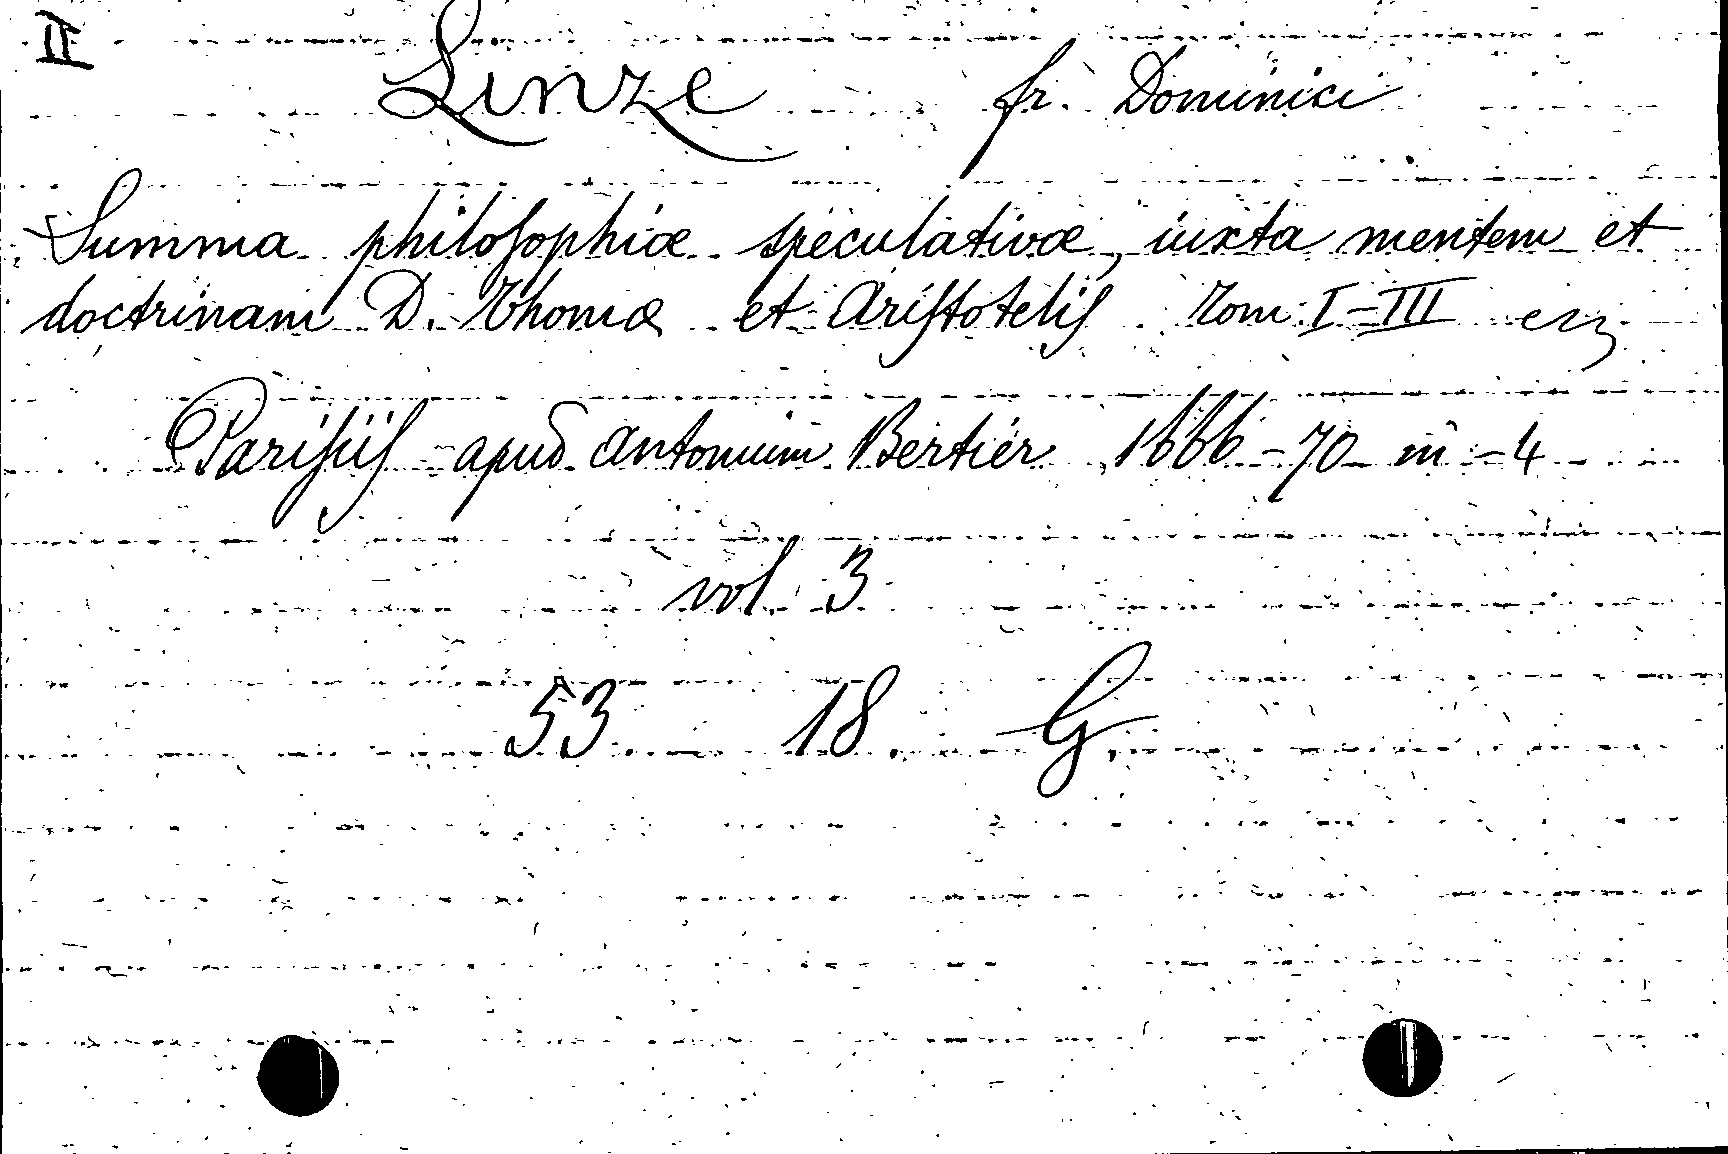 II
Linze fr. Dominici
Summa philosophiæ speculativæ, iuxta mentem et
doctrinam D. Thomæ et Aristotelis Tom: I-III
Parisiis apud Antonium Bertier 1666-70 in -4
vol 3
53 18 G